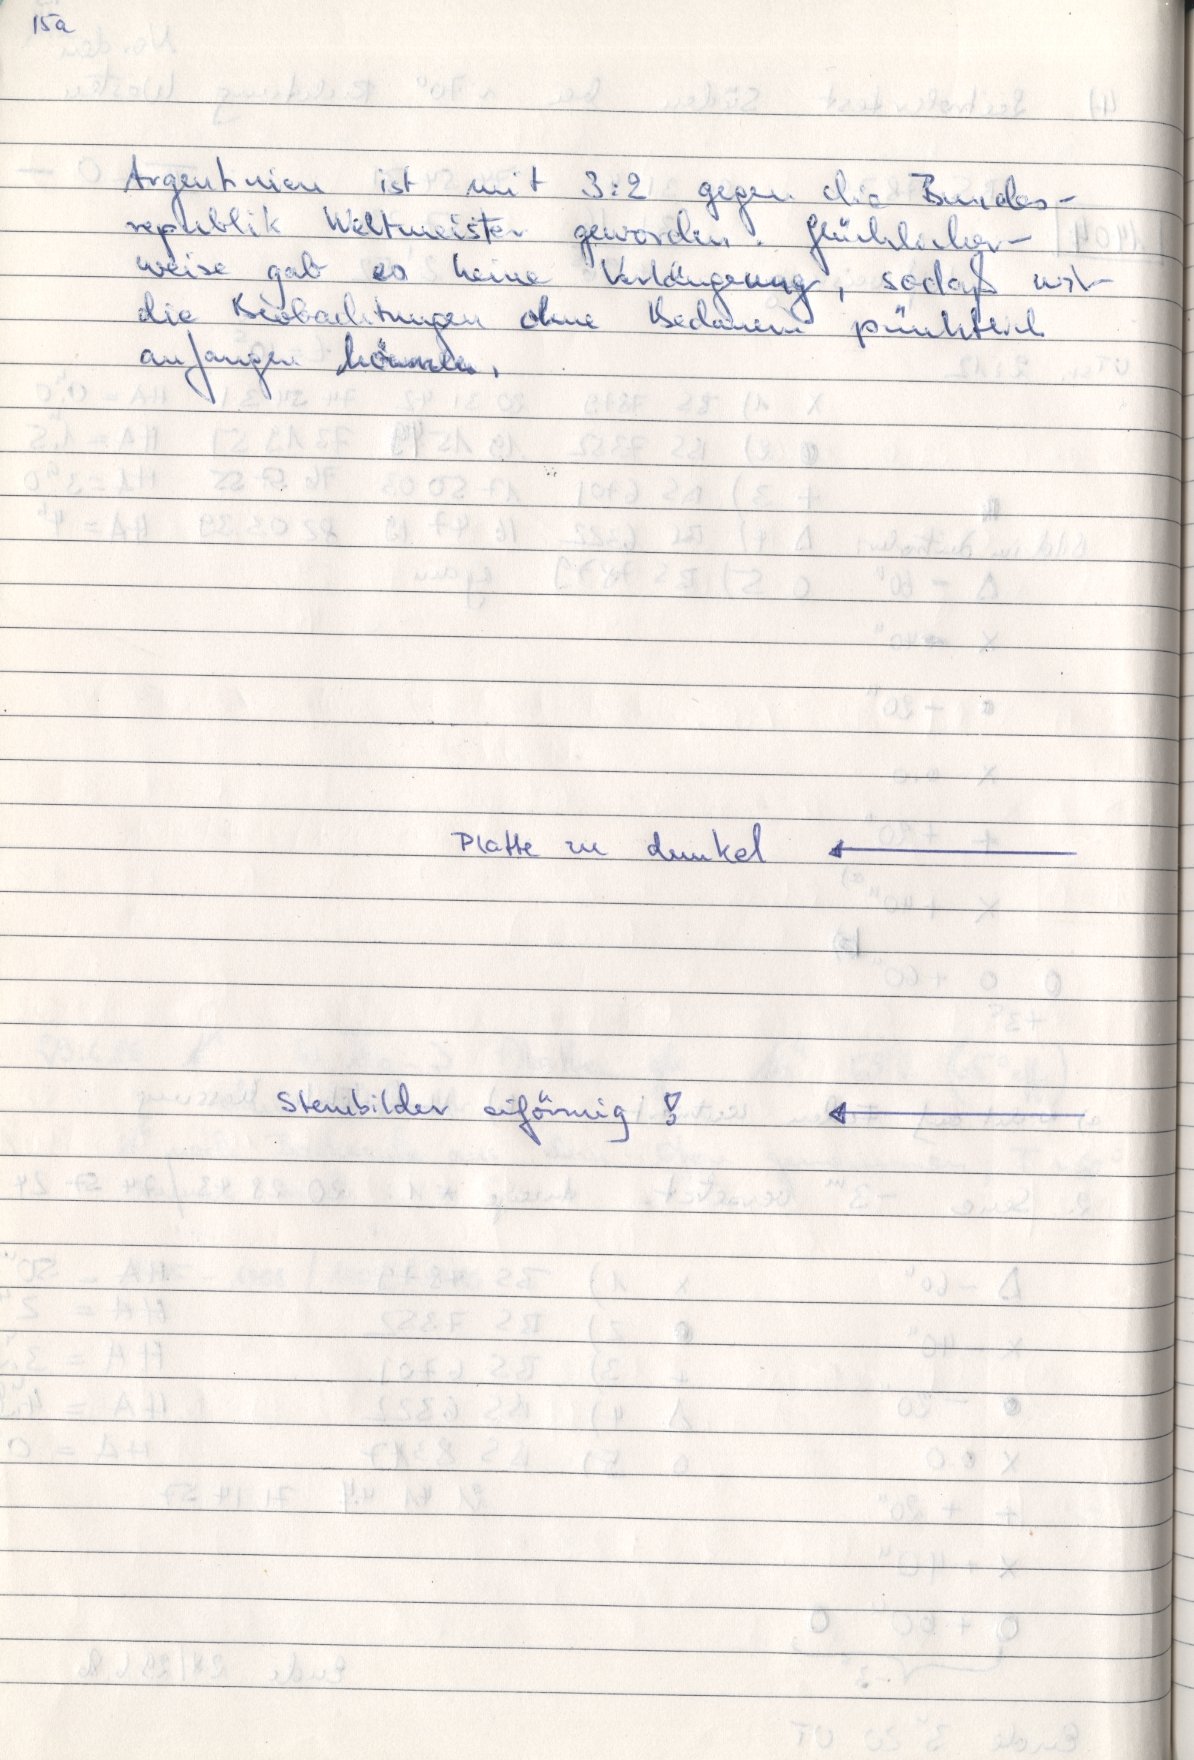 15a
Argentinien ist mit 3:2 gegen die Bundes-
republik Weltmeister geworden. Glücklicher-
weise gab es keine Verlängerung, sodaß wir
die Beobachtungen ohne Bedauern pünktlich
anfangen können.
Platte zu dunkel
Sternbilder eiförmig !